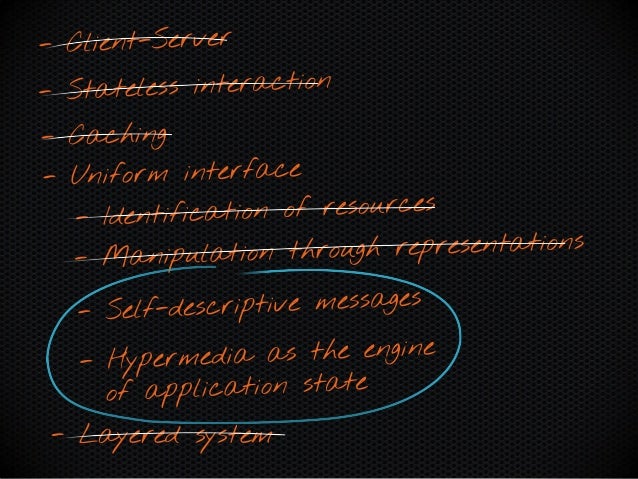 - Client-Server
- Stateless interaction
- Caching
- Uniform interface
- Identification of resources
- Manipulation through representations
- Self-descriptive messages
- Hypermedia as the engine
of application state
- Layered system